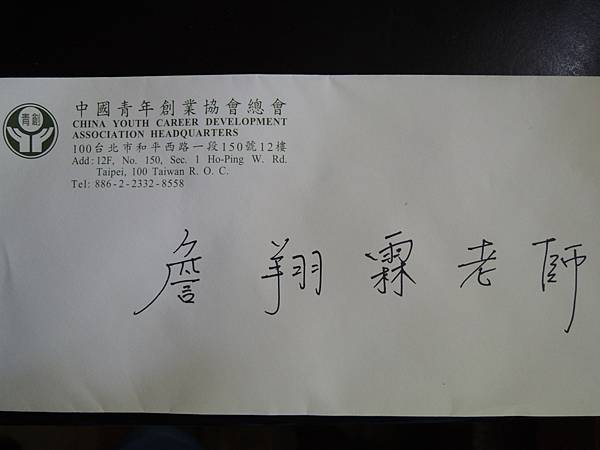 青創
中國青年創業協會總會
CHINA YOUTH CAREER DEVELOPMENT
ASSOCIATION HEADQUARTERS
100台北市和平西路一段150號12樓
Add: 12F, No. 150, Sec. 1 Ho-Ping W. Rd.
Taipei, 100 Taiwan R. O. C.
Tel: 886-2-2332-8558
詹翔霖老師